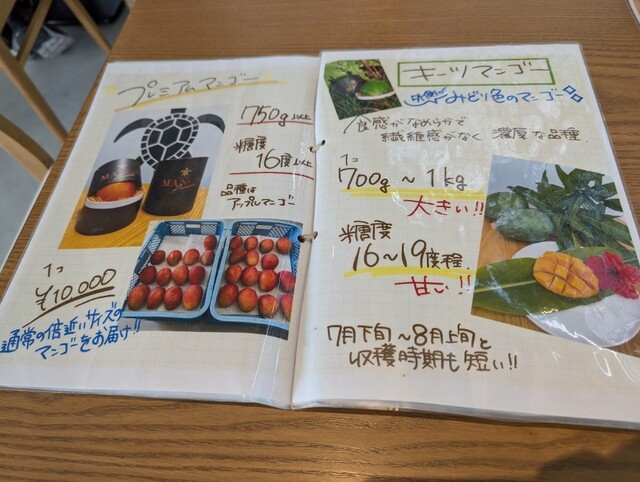 プレミアムマンゴー
750g以上
糖度
16度以上
品種は
アップルマンゴー
1コ
¥10,000
通常の倍近いサイズの
マンゴーをお届け!!
キーツマンゴー
みどり色のマンゴー
食感がなめらかで
繊維感がなく 濃厚な品種.
1コ
700g～1kg
大きい!!
糖度
16～19度程.
甘い!!
7月下旬～8月上旬と
収穫時期も短い!!